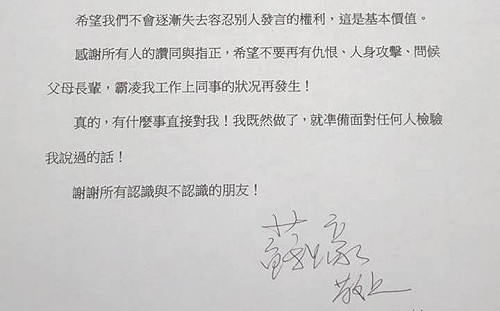 希望我們不會逐漸失去容忍別人發言的權利,這是基本價值。
感謝所有人的讚同與指正,希望不要再有仇恨、人身攻擊、問候
父母長輩,霸凌我工作上同事的狀況再發生!
真的,有什麼事直接對我!我既然做了,就準備面對任何人檢驗
我說過的話!
謝謝所有認識與不認識的朋友!
敬上